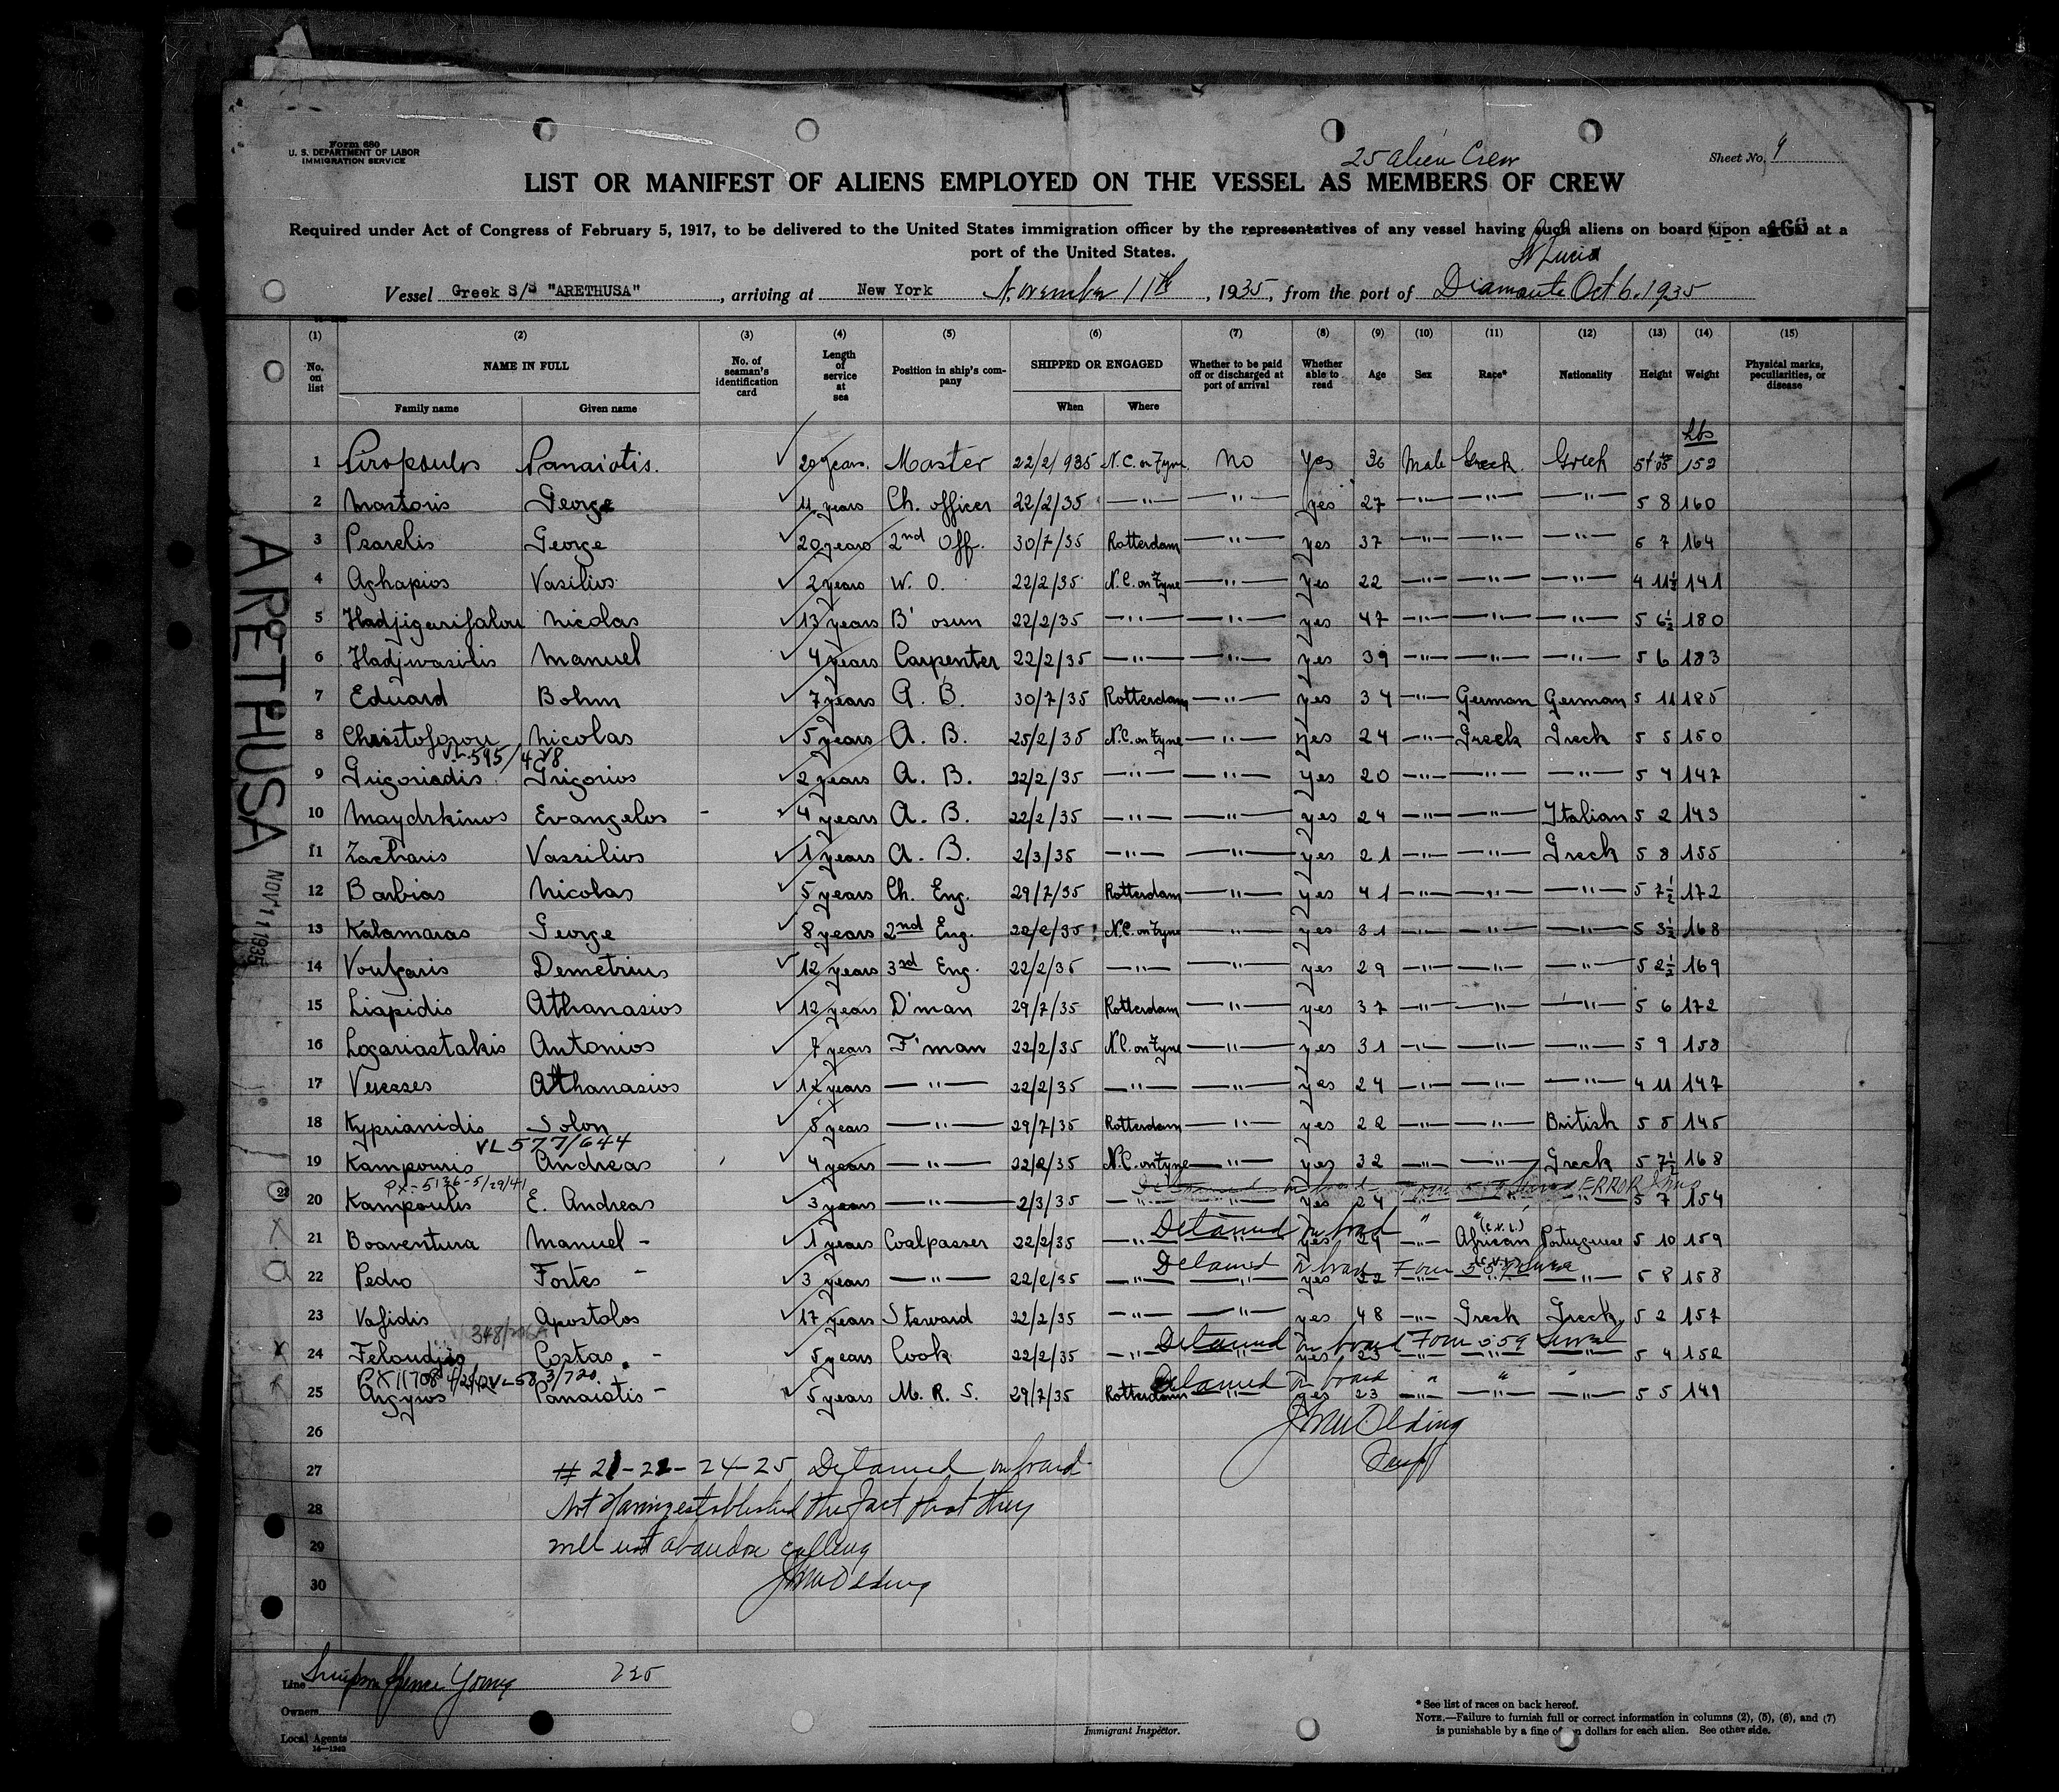 Form 680
U. S. DEPARTMENT OF LABOR
IMMIGRATION SERVICE
25 alien Crew
Sheet No. 9
LIST OR MANIFEST OF ALIENS EMPLOYED ON THE VESSEL AS MEMBERS OF CREW
Required under Act of Congress of February 5, 1917, to be delivered to the United States immigration officer by the representatives of any vessel having such aliens on board upon arrival at a
port of the United States.
166
St Lucia
Vessel Greek S/S "ARETHUSA", arriving at New York November 11th, 1935, from the port of Diamante Oct 6. 1935
(1) (2) (3) (4) (5) (6) (7) (8) (9) (10) (11) (12) (13) (14) (15)
No. on list NAME IN FULL Family name Given name No. of seaman's identification card Length of service at sea Position in ship's company SHIPPED OR ENGAGED When Where Whether to be paid off or discharged at port of arrival Whether able to read Age Sex Race* Nationality Height Weight Physical marks, peculiarities, or disease
lbs
1 Piropoulos Panaiotis. 20 years. Master 22/2/935 N.C. on Tyne no yes 36 Male Greek Greek 152
2 Mastoris George 11 years Ch. officer 22/2/35 —"— —"— yes 27 —"— —"— —"— 5 8 160
3 Psarelis George 20 years 2nd Off. 30/7/35 Rotterdam —"— yes 37 —"— —"— —"— 5 7 164
4 Aghapios Vasilios 2 years W. O. 22/2/35 N.C. on Tyne —"— yes 22 —"— —"— —"— 4 11½ 141
5 Nicolas 13 years B'osun 22/2/35 —"— —"— yes 47 —"— —"— —"— 5 6½ 180
6 Hadjivasilis Manuel 4 years Carpenter 22/2/35 —"— —"— yes 39 —"— —"— —"— 5 6 183
7 Eduard Bohm 7 years A. B. 30/7/35 Rotterdam —"— yes 34 —"— German German 5 11 185
8 Christoforou Nicolas 5 years A. B. 25/2/35 N.C. on Tyne —"— yes 24 —"— Greek Greek 5 5 150
VL 595/428
9 Grigoriadis Grigorios 2 years A. B. 22/2/35 —"— —"— yes 20 —"— —"— —"— 5 4 147
10 Maydrkinos Evangelos - 4 years A. B. 22/2/35 —"— —"— yes 24 —"— —"— Italian 5 2 143
11 Zacharis Vassilios 1 years A. B. 2/3/35 —"— —"— yes 21 —"— —"— Greek 5 8 155
12 Barbias Nicolas 5 years Ch. Eng. 29/7/35 Rotterdam —"— yes 41 —"— —"— —"— 5 7½ 172
13 Kalamaras George 8 years 2nd Eng. 22/2/35 N.C. on Tyne —"— yes 31 —"— —"— —"— 5 3½ 168
14 Voulgaris Demetrius 12 years 3rd Eng. 22/2/35 —"— —"— yes 29 —"— —"— —"— 5 2½ 169
15 Liapidis Athanasios 12 years D'man 29/7/35 Rotterdam —"— yes 37 —"— —"— —"— 5 6 172
16 Logariastakis Antonios 7 years F'man 22/2/35 N.C. on Tyne —"— yes 31 —"— —"— —"— 5 9 158
17 Veresses Athanasios years —"— 22/2/35 —"— —"— yes 24 —"— —"— —"— 4 11 147
18 Kyprianidis Solon 8 years —"— 29/7/35 Rotterdam —"— yes 22 —"— —"— British 5 5 145
VL 577/644
19 Kampouris Andreas 4 years —"— 22/2/35 N.C. on Tyne —"— yes 32 —"— —"— Greek 5 7½ 168
PX-5136-5/29/41 Detained on board Form 559 served ERROR
20 Kampoulis E. Andreas 3 years —"— 2/3/35 —"— —"— yes 24 —"— —"— —"— 5 7 154
Detained on board " " (c.v.i.)
21 Boaventura Manuel - 1 years Coalpasser 22/2/35 —"— —"— yes 29 —"— African Portuguese 5 10 159
Detained on board Form 559 served
22 Pedro Fortes - 3 years —"— 22/2/35 —"— —"— yes 32 —"— —"— —"— 5 8 158
23 Vafidis Apostolos 17 years Steward 22/2/35 —"— —"— yes 48 —"— Greek Greek 5 2 157
348/206A Detained on board Form 559 served
24 Feloudjis Costas - 5 years Cook 22/2/35 —"— —"— yes 23 —"— —"— —"— 5 4 152
Detained on board " " "
25 Argyros Panaiotis - 5 years M. R. S. 29/7/35 Rotterdam —"— yes 23 —"— —"— —"— 5 5 149
26
27 # 21-22-24-25 Detained on board
28 Not having established the fact that they
29 will not abandon calling
30
ARETHUSA
NOV 11 1935
Line Simpson Spence Young 225
Owners
Local Agents
14—1240
Immigrant Inspector.
* See list of races on back hereof.
NOTE.—Failure to furnish full or correct information in columns (2), (5), (6), and (7)
is punishable by a fine of ten dollars for each alien. See other side.